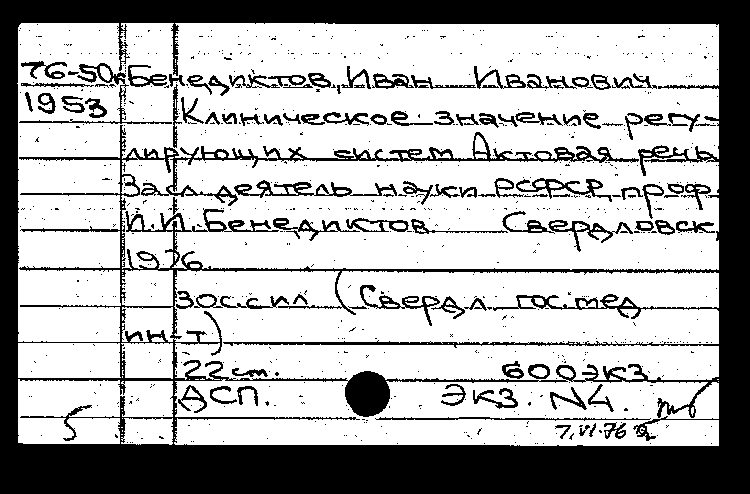 76-50к Бенедиктов, Иван Иванович.
1953 Клиническое значение регу-
лирующих систем Актовая речь
Засл. деятель науки РСФСР, проф.
И.И. Бенедиктов. Свердловск,
1976.
30с. с ил. (Свердл. гос. мед
ин-т)
22 см. 600 экз.
ДСП. Экз. N4.
5 7.VI.76